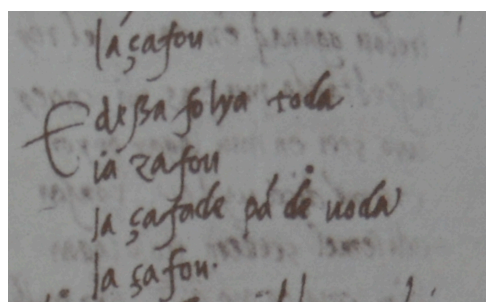 la çafou
E deßa folya toda
ia zafou
la çafade pá de uoda
la çafou.